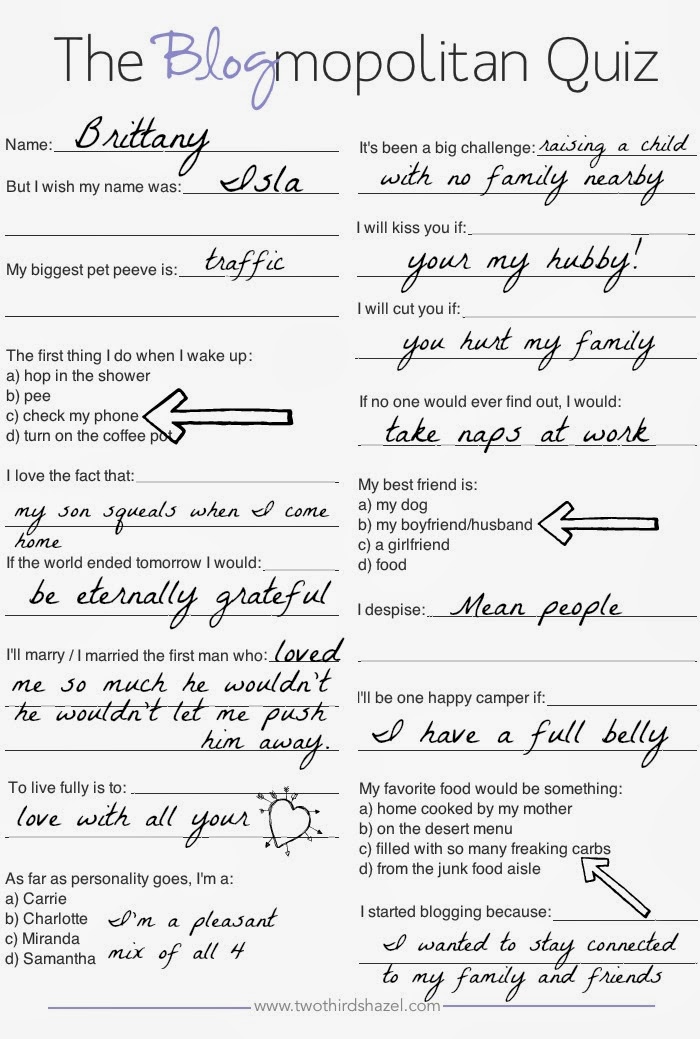 The Blogmopolitan Quiz
Name: Brittany
But I wish my name was: Isla
My biggest pet peeve is: traffic
The first thing I do when I wake up:
a) hop in the shower
b) pee
c) check my phone
d) turn on the coffee pot
I love the fact that:
my son squeals when I come
home
If the world ended tomorrow I would:
be eternally grateful
I'll marry / I married the first man who: loved
me so much he wouldn't
he wouldn't let me push
him away.
To live fully is to:
love with all your
As far as personality goes, I'm a:
a) Carrie
b) Charlotte
c) Miranda
d) Samantha
I'm a pleasant
mix of all 4
It's been a big challenge: raising a child
with no family nearby
I will kiss you if:
your my hubby!
I will cut you if:
you hurt my family
If no one would ever find out, I would:
take naps at work
My best friend is:
a) my dog
b) my boyfriend/husband
c) a girlfriend
d) food
I despise: Mean people
I'll be one happy camper if:
I have a full belly
My favorite food would be something:
a) home cooked by my mother
b) on the desert menu
c) filled with so many freaking carbs
d) from the junk food aisle
I started blogging because:
I wanted to stay connected
to my family and friends
www.twothirdshazel.com